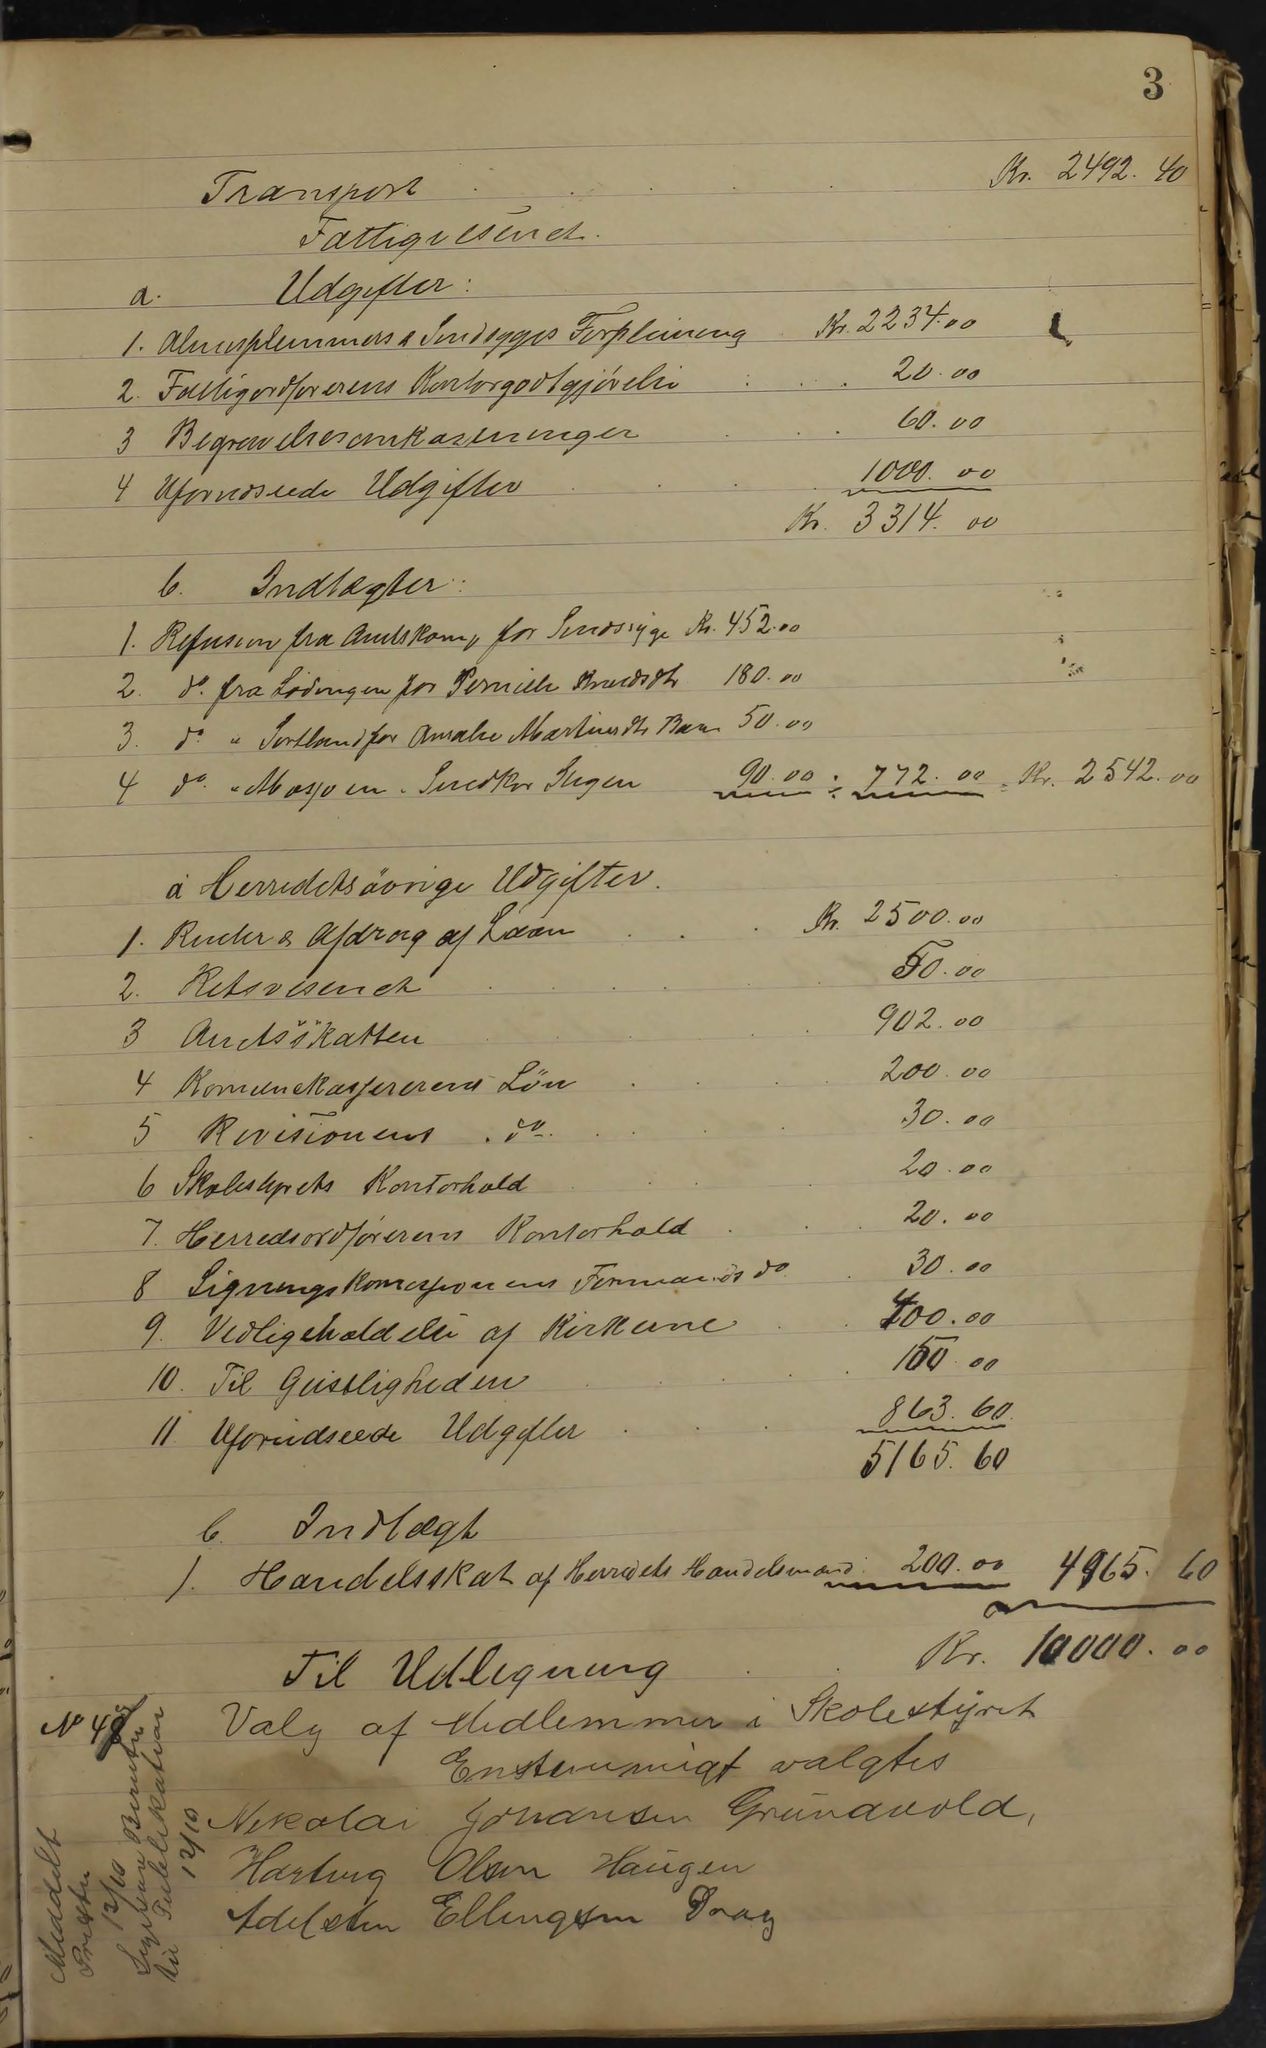 3
Transport Kr. 2492.40
Fattigvæsenet.
a. Udgifter:
1. Almeplemmers & Sindsyges Forpleining Kr. 2234.00
2. Fattigordførerens Kontorgodtgjörelse 20.00
3 Begravelsesomkostninger 60.00
4 Uforudseede Udgifter 1000.00
Kr. 3314.00
b. Indtægter:
1. Refusion fra Amtskom, for Sindssyge Kr. 452.00
2. do. fra Lödingen for Pernille Knudsdtr 180.00
3. do " Sortland for Amalie Martinsdtr Barn 50.00
4 do " Mosjøen " Snedker 90.00 ÷ 772.00 = Kr. 2542.00
a Herredets övrige Udgifter.
1. Renter & Afdrag af Laan Kr. 2500.00
2. Retsvesenet 50.00
3 Amtsskatten 902.00
4 Komunekasserernes Lön 200.00
5 Revisionens do 30.00
6 Skolestyrets Kontorhold 20.00
7. Herredsordførerens Kontorhold 20.00
8 Ligningskomissionens Formands do 30.00
9. Vedligeholdelse af Kirkerne 400.00
10. Til Geistligheden 150.00
11 Uforudseede Udgifter 863.60
5165.60
b. Indtægt
1. Handelsskat af Herredets Handelsmænd 200.00 4965.60
Til Udligning Kr. 10000.00
No 4 Valg af Medlemmer i Skolestyret
Enstemmigt valgtes
Nikolai Johansen Grundvold,
Hartvig Olsen Haugen
Adelsten Ellingsen Drag
Meddelt
Presten
12/10
12/10